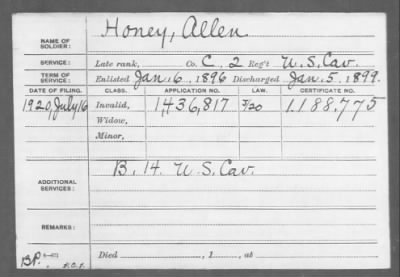 NAME OF SOLDIER: Honey, Allen
SERVICE: Late rank, Co. C, 2 Reg't U.S. Cav.
TERM OF SERVICE: Enlisted Jan. 6, 1896 Discharged Jan. 5, 1899.
DATE OF FILING. CLASS. APPLICATION NO. LAW. CERTIFICATE NO.
1920, July 16 Invalid, 1,436,817 1,188,775
Widow,
Minor,
ADDITIONAL SERVICES: B. 14. U.S. Cav.
REMARKS:
Died , 1 , at